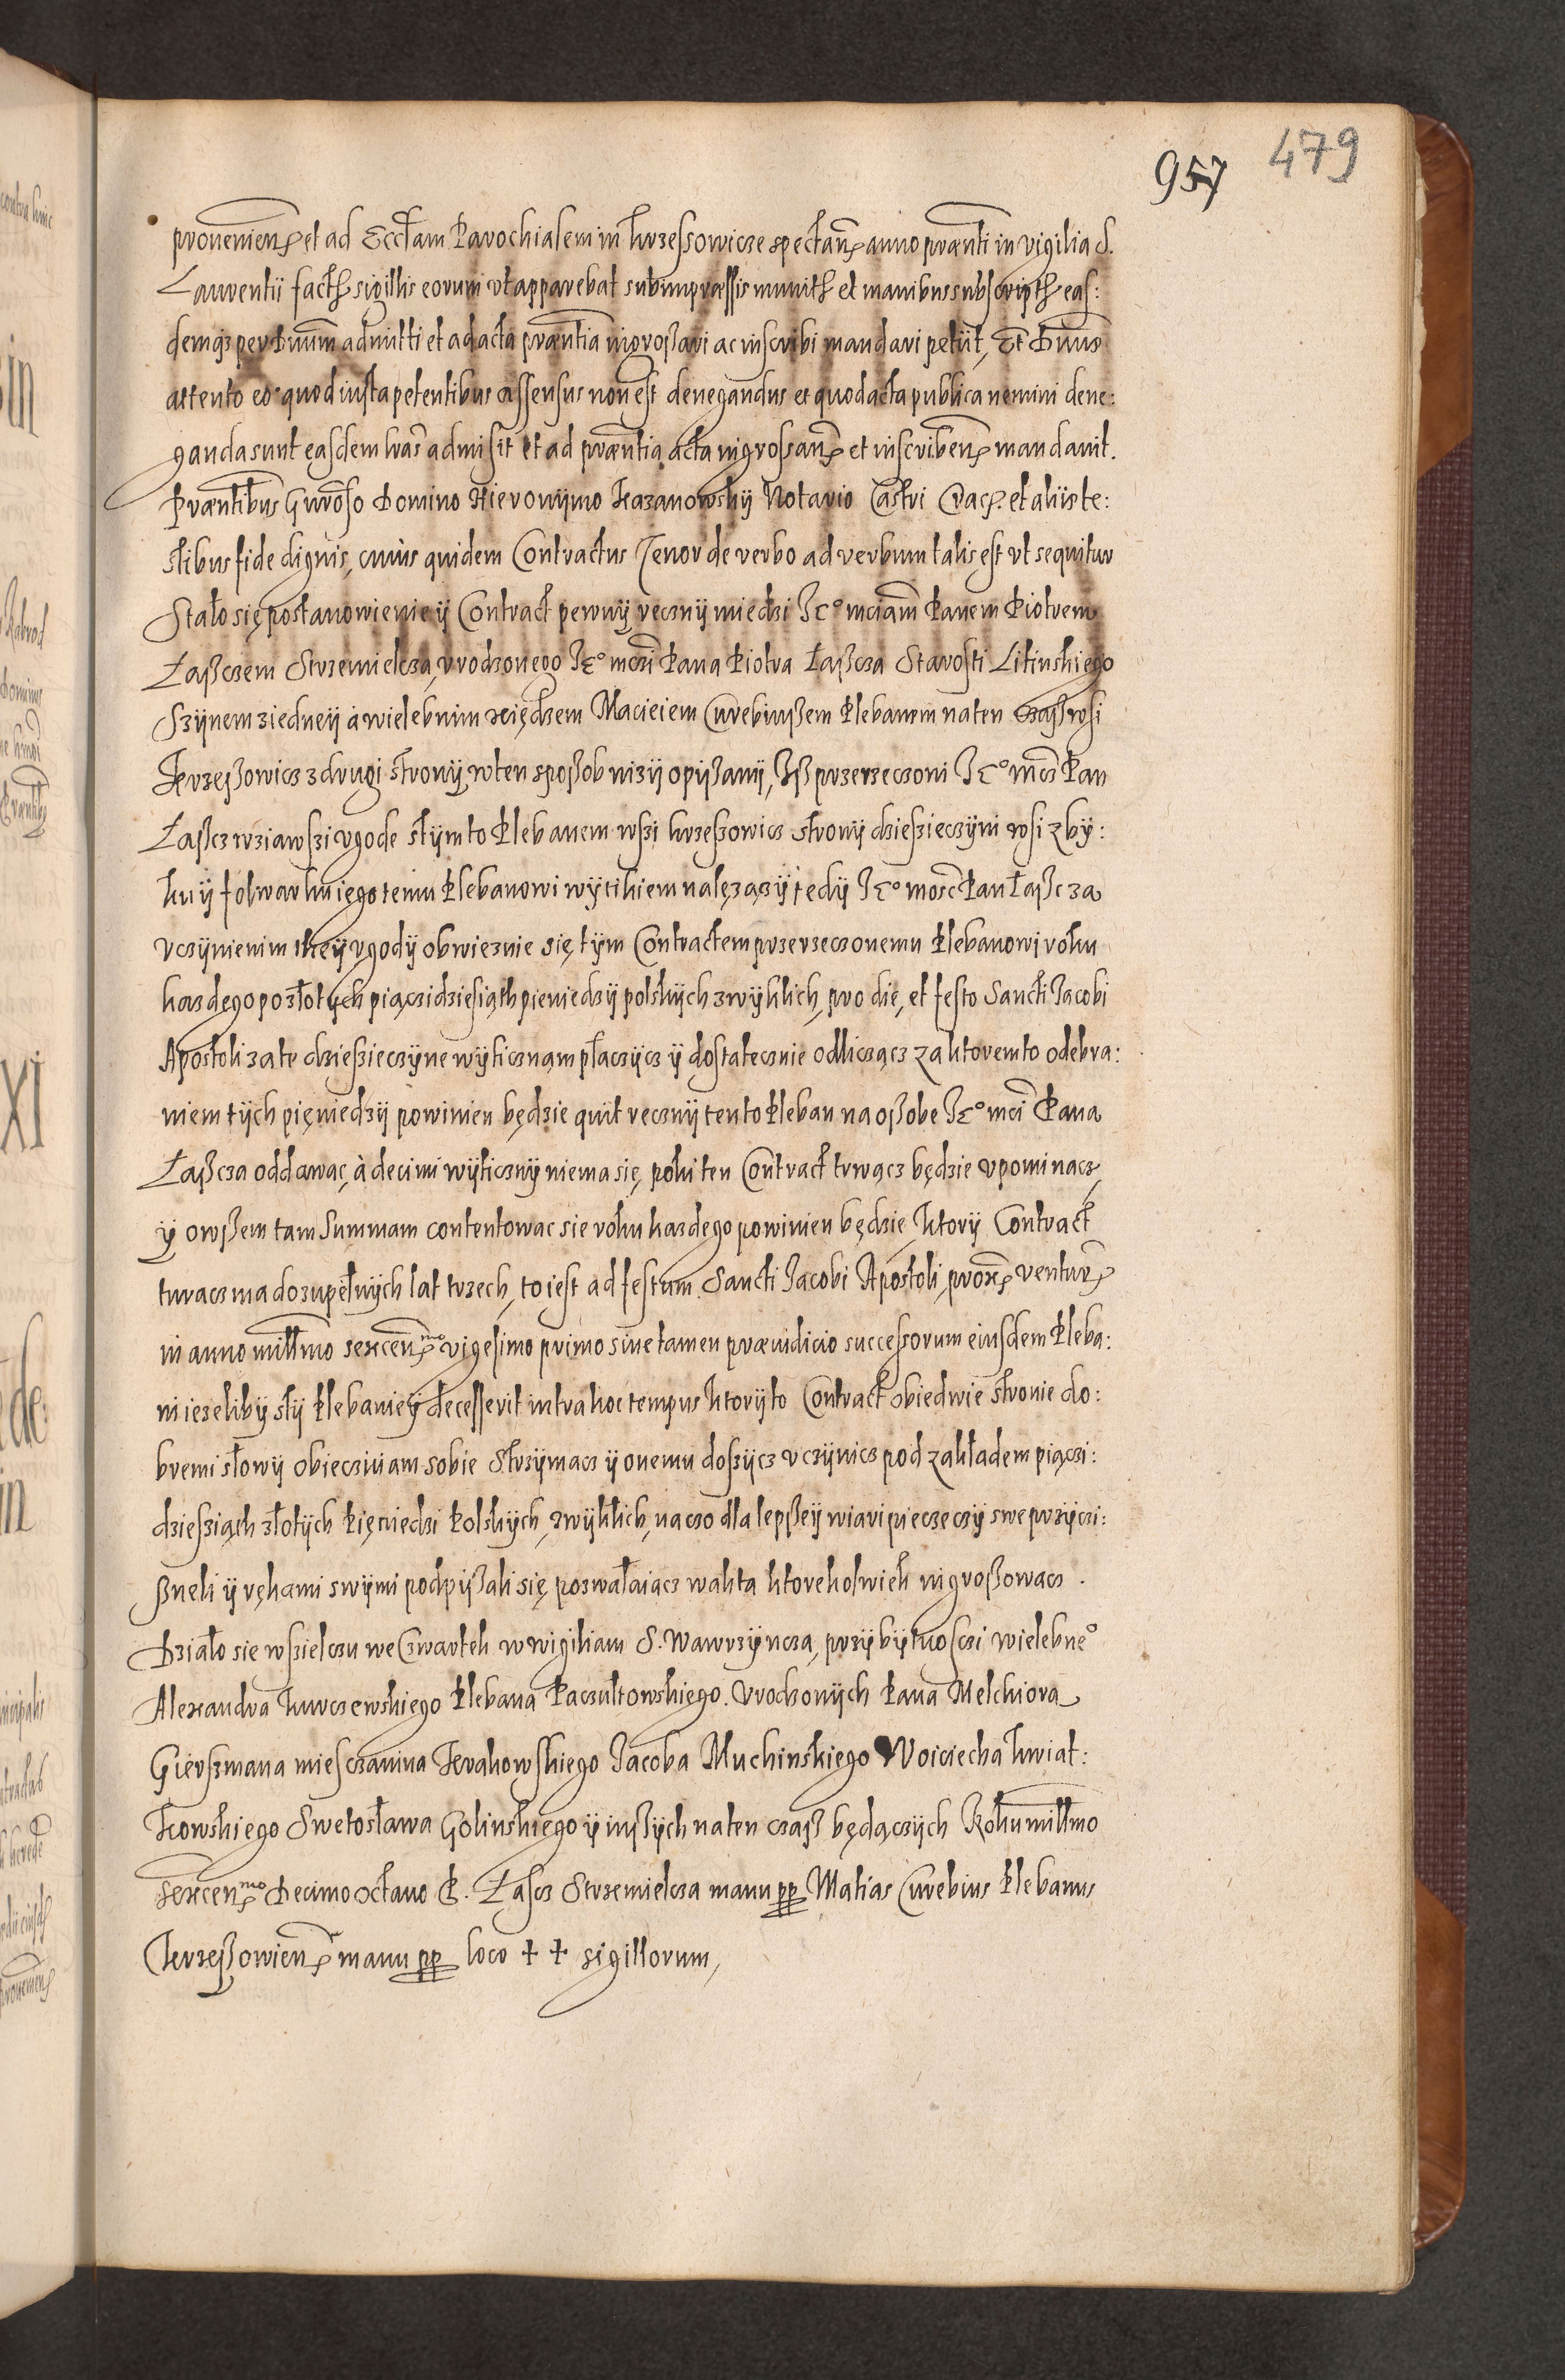 957 479
provenien et ad Eccłam Parochialem in Krzessowicze spectan anno prænti in vigilia S.
Laurentii fact sigillis eorum vt apparebat subimpræssis munit et manibus subscript eas:
demq3 per Dnum admitti et ad acta præntia ingrossari ac inscribi mandari petiit, Et Dnus
attento eo quod iusta petentibus assensus non est denegandus et quod acta publica nemini dene:
ganda sunt easdem lras admisit et ad præntia acta ingrossan et inscriben mandavit.
Præntibus Gnroso Domino Hieronÿmo Kazanowskÿ Notario Castri Crac. et aliis te:
stibus fide dignis, cuius quidem Contractus Tenor de verbo ad verbum talis est vt sequitur
Stało się postanowienie ÿ Contract pewnÿ recznÿ miedzi Je° mciam Panem Piotrem
Łaßczem Strzemielcza, vrodzonego Je° mczi Pana Piotra Łaßcza Starosti Litinskiego
Szÿnem ziedneÿ à wielebnim xiędzem Macieiem Curebiußem Plebanem na ten czaß wsi
Krzeßowicz z drugi stronÿ, w ten sposob niziÿ opißanÿ, Iß przerzeczoni Je° mcz Pan
Łaßcz wziawszi vgode stÿm to Plebanem wszi Krzeszowicz stronÿ dzieszieczÿni wsi zbÿ:
ku ÿ folwarku iego temu Plebanowi wÿtikiem nalęzączÿ tedÿ Je° mosc Pan Łaßc za
vczÿnienim theÿ vgodÿ obwieznie się tÿm Contractem przerzeczonemu Plebanowi roku
kazdego po złotÿch piączidziesiąth pieniedzÿ polskÿch zwÿklich, pro die, et festo Sancti Jacobi
Apostoli za te dzieszieczÿne wÿticzną płaczÿcz ÿ dostatecznie odliczącz za ktorem to odebra:
niem tÿch pięniedzÿ powinien będzie quit recznÿ tento Pleban na oßobe Je° mci Pana
Łaßcza oddawac, à decimi wÿticznÿ niema się, poki ten Contract trwącz będzie vpominacz,
ÿ owßem tam Summam contentowac sie roku kazdego powinien będzie, ktorÿ Contract
trwacz ma do zupełnÿch lat trzech, to iest ad festum Sancti Jacobi Apostoli, prox ventur
in anno millmo sexcen mo vigesimo primo sine tamen præiudicio successorum eiusdem Pleba:
ni iezelibÿ stÿ Plebanieÿ decesserit intra hoc tempus ktorÿ to Contract obiedwie stronie do:
bremi słowÿ obieczuiam sobie strzÿmacz ÿ onemu doszÿcz vczÿnicz pod zakładem piączi:
dziesziąth złotÿch Pięniedzi Polskÿch, zwÿklich, na czo dla lepßeÿ wiari pieczeczÿ swe przÿczi:
ßneli ÿ rękami swÿmi podpißali się, pozwałaiacz w akta ktorekolwiek ingroßowacz.
Działo sie w szielczu we Czwartek w wigiliam S. Wawrzÿncza, przÿ bÿtnosczi wielebne°
Alexandra Kurczewskiego Plebana Paczultowskiego. Vrodzonÿch Pana Melchiora
Gierszmana miesczanina Krakowskiego Jacoba Muchinskiego Woiciecha Kwiat:
kowskiego Swetosława Golinskiego ÿ inßÿch na ten czaß będączÿch Roku millmo
sexcen mo Decimo octavo P. Łascz Strzemielcza manu pp Matias Curebius Plebanus
Krzeßowien manu pp loco ✝ ✝ sigillorum,